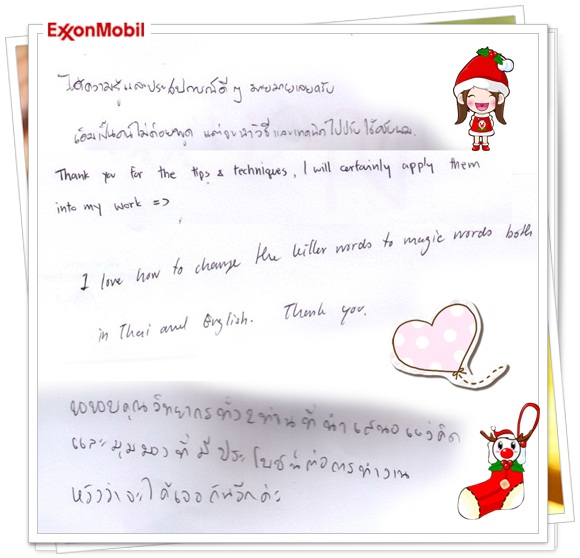 ExxonMobil
ได้ความรู้และประสบการณ์ดีๆ มากมายเลยครับ
เดิมเป็นคนไม่ค่อยพูด แต่จะนำวิธี และเทคนิคไปปรับใช้ครับผม.
Thank you for the tips & techniques, I will certainly apply them
into my work =>
I love how to change the killer words to magic words both
in Thai and English. Thank you.
ขอขอบคุณวิทยากรทั้ง 2 ท่านที่นำเสนอแนวคิด
และมุมมองที่มีประโยชน์ต่อการทำงาน
หวังว่าจะได้เจอกันอีกค่ะ